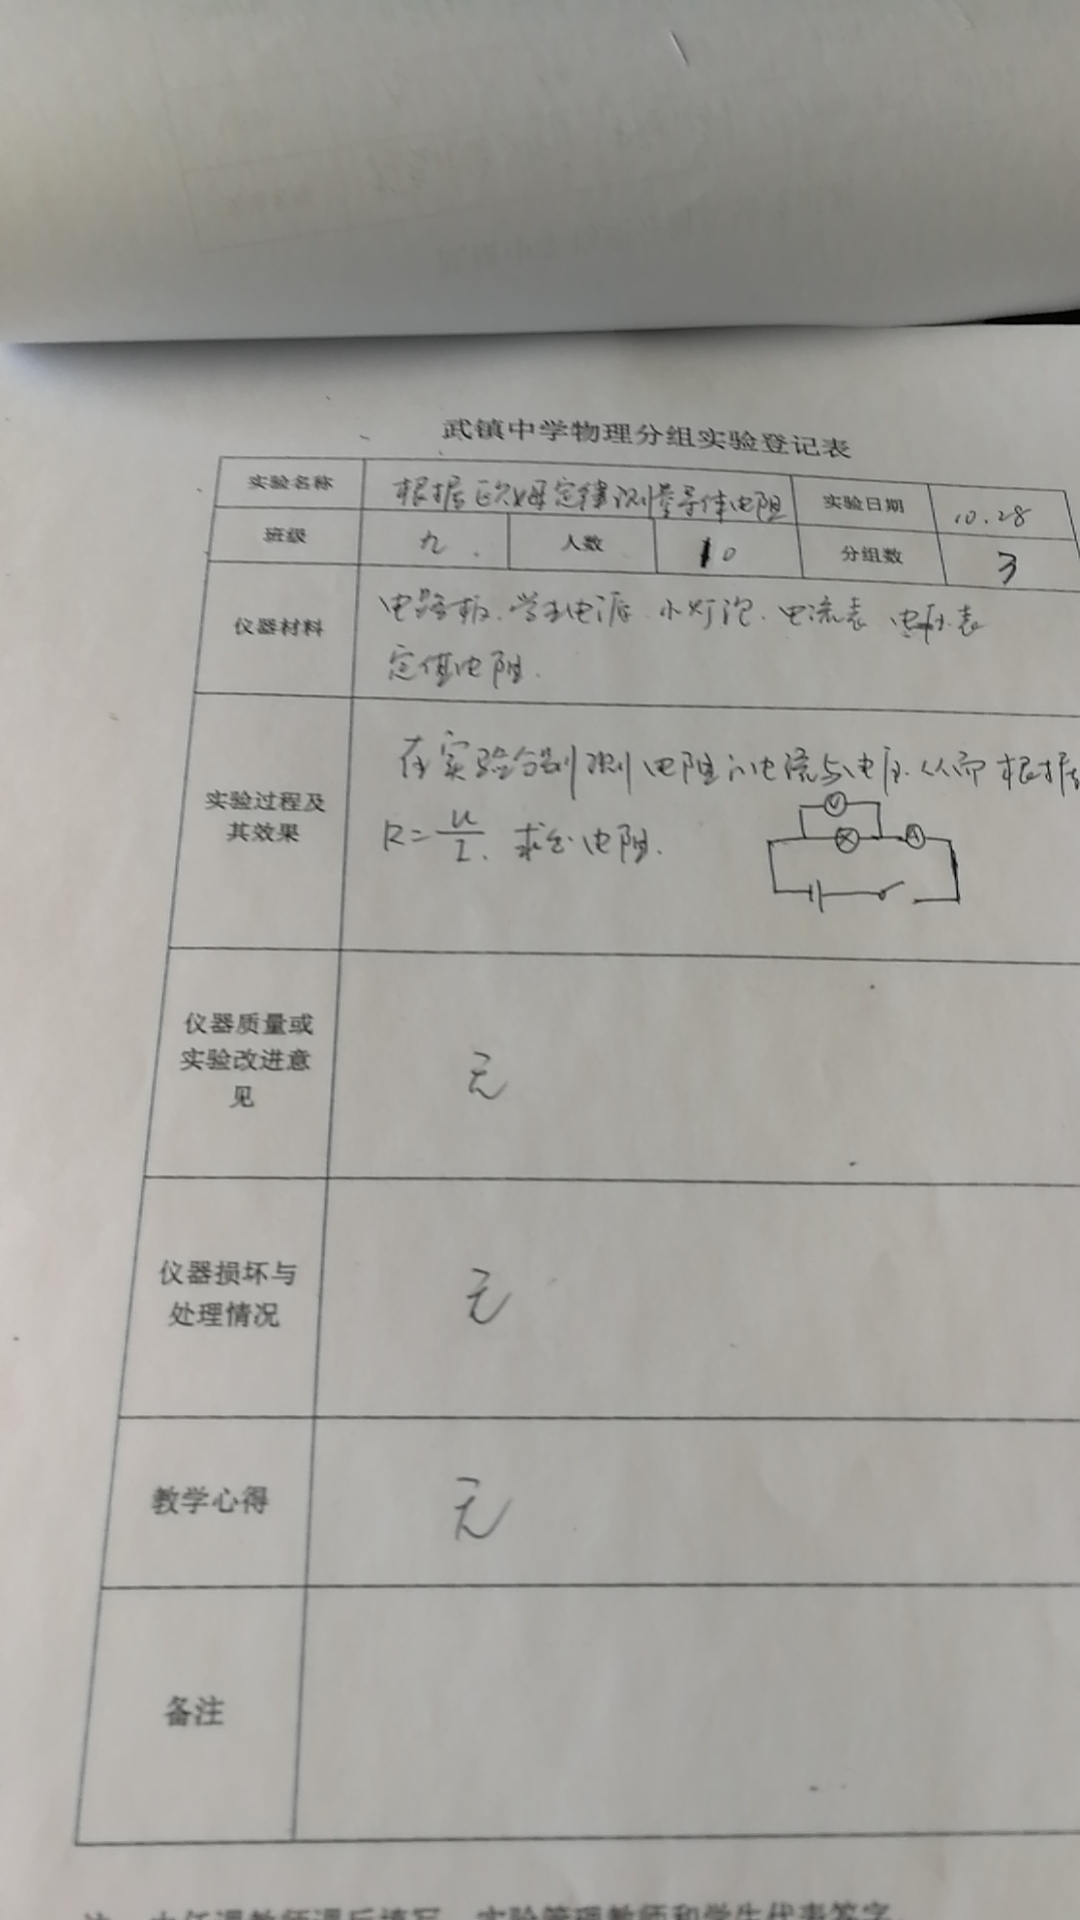 武镇中学物理分组实验登记表
实验名称 根据欧姆定律测量导体电阻 实验日期 10.28
班级 九. 人数 10 分组数 3
仪器材料
电路板.学生电源.小灯泡.电流表 电压表
定值电阻.
实验过程及
其效果
在实验分别测电阻的电流与电压.从而根据
R=U/I.求出电阻.
V
A
仪器质量或
实验改进意
见
无
仪器损坏与
处理情况
无
教学心得
无
备注